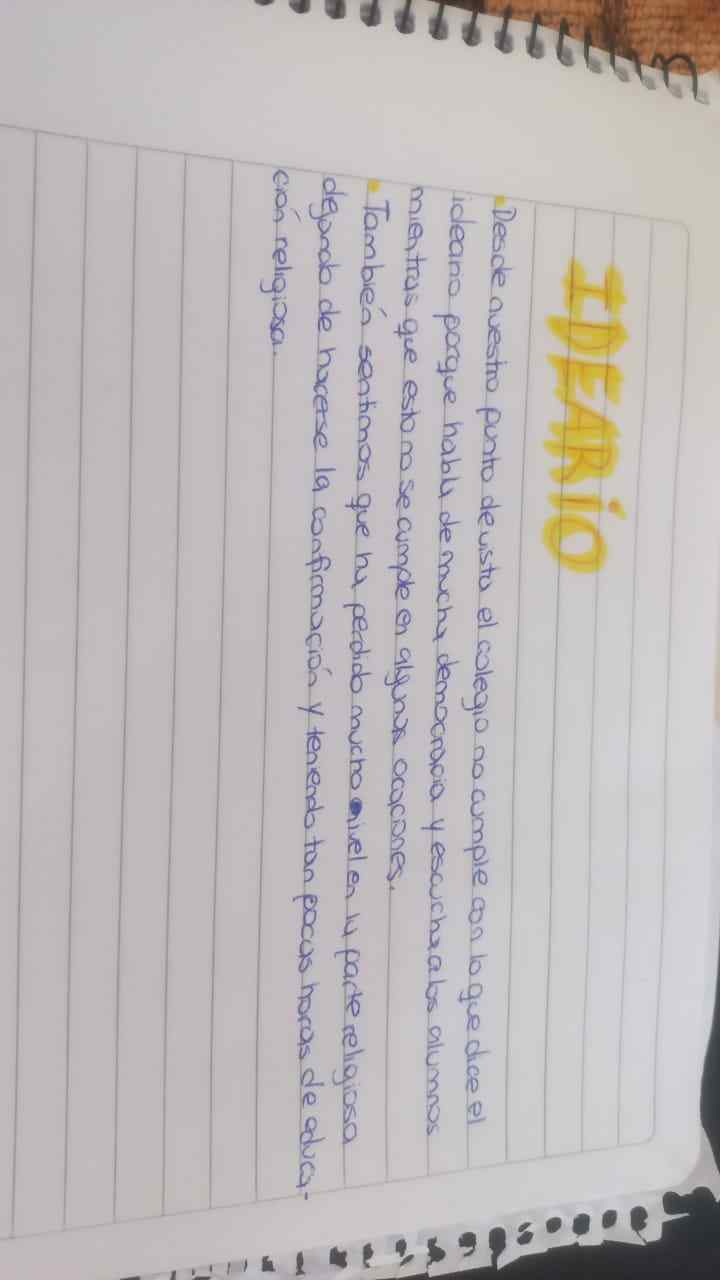 IDEARIO
• Desde nuestro punto de vista el colegio no cumple con lo que dice el
ideario porque habla de mucha democracia y escucha a los alumnos
mientras que esto no se cumple en algunas ocaciones.
• También sentimos que ha perdido mucho nivel en la parte religiosa
dejando de hacerse la confirmación y teniendo tan pocas horas de educa-
ción religiosa.